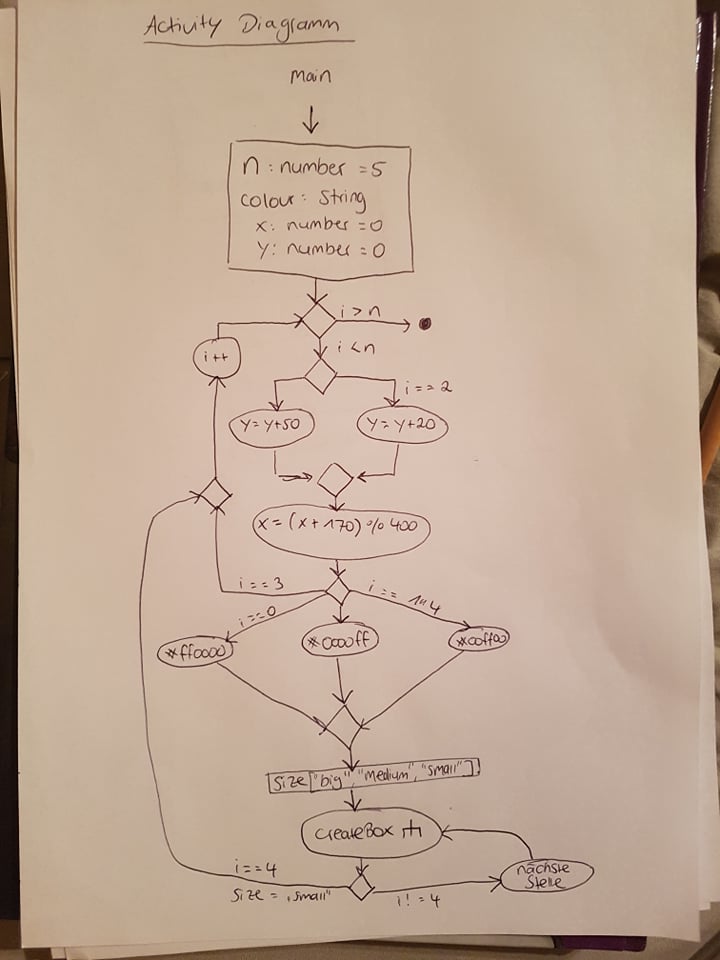 Activity Diagramm
Main
n : number = 5
colour : String
x : number = 0
y : number = 0
i > n
i < n
i++
i == 2
y = y+50
y = y+20
x = (x + 170) % 400
i == 3
i == 1 4
i == 0
#ff0000
#0000ff
#00ff00
size ["big", "medium", "small"]
createBox
i == 4
size = „small"
i ! = 4
nächste
Stelle